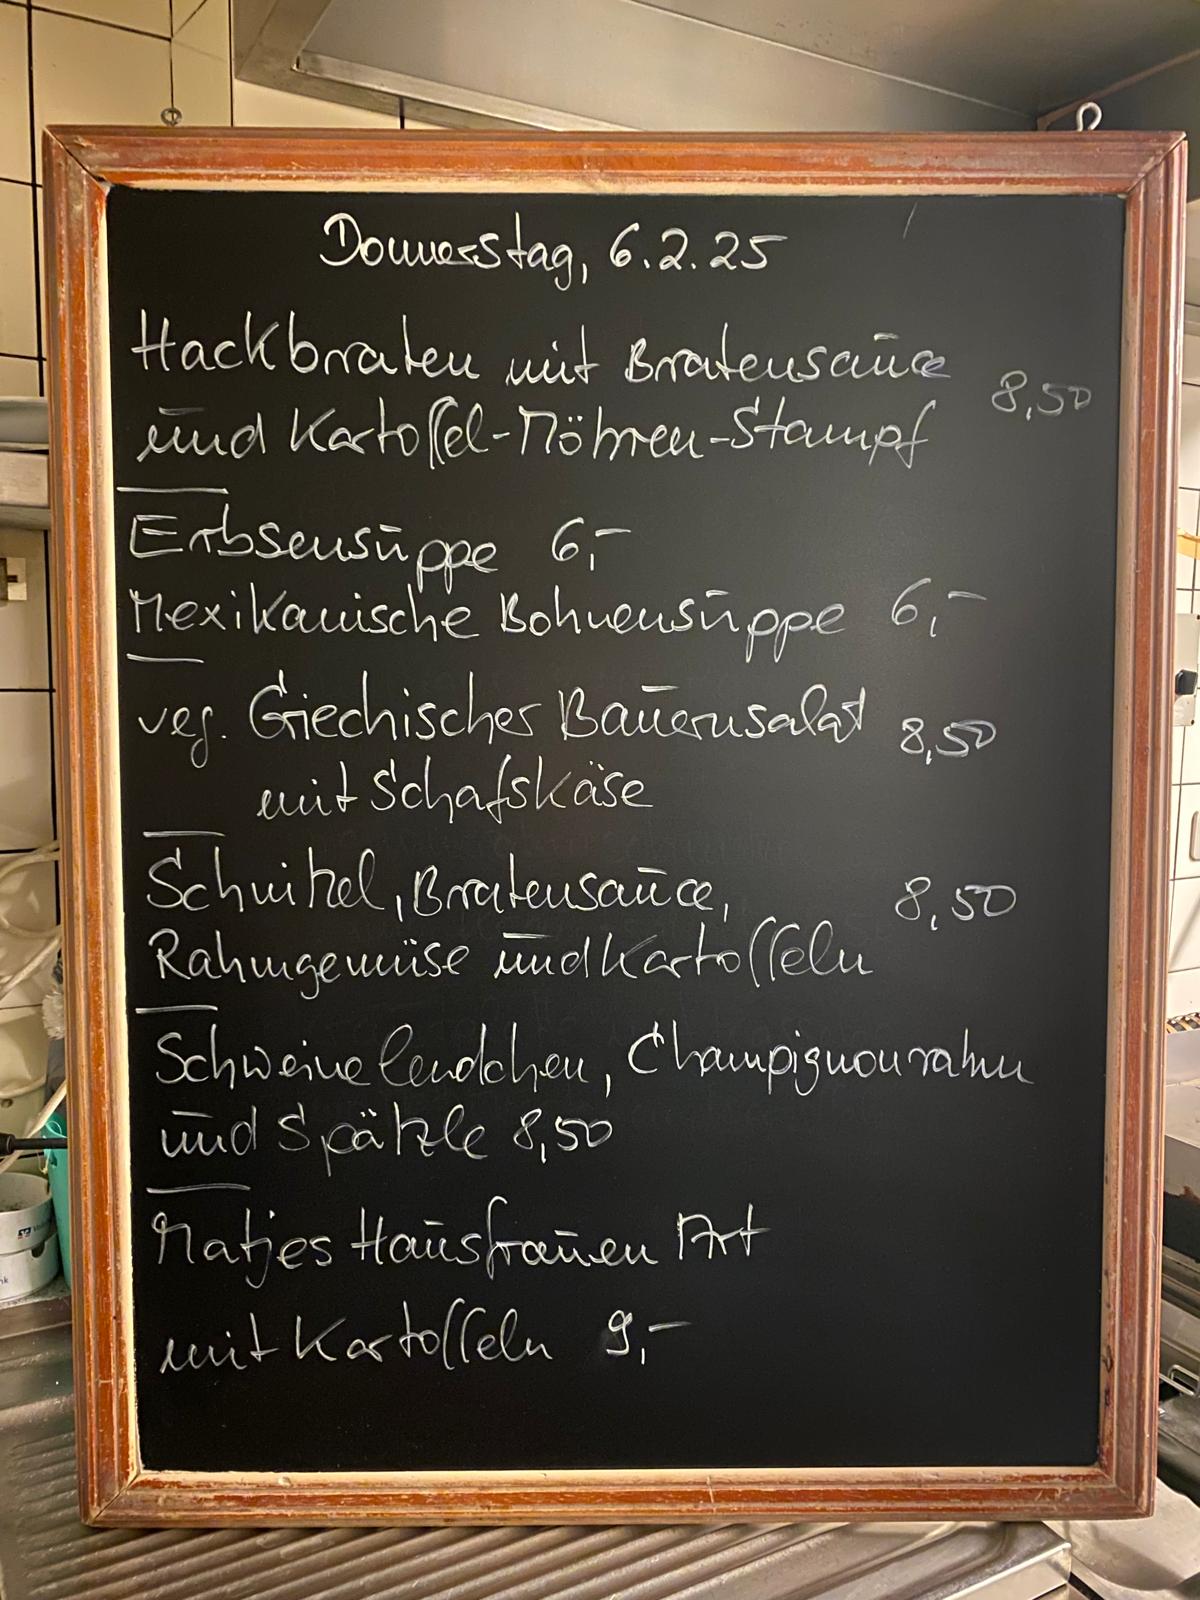 Donnerstag, 6.2.25
Hackbraten mit Bratensauce
8,50
und Kartoffel-Möhren-Stampf
Erbsensuppe 6,-
Mexikanische Bohnensuppe 6,-
veg. Griechischer Bauernsalat 8,50
mit Schafskäse
Schnitzel, Bratensauce, 8,50
Rahmgemüse und Kartoffeln
Schweinelendchen, Champignonrahm
und Spätzle 8,50
Matjes Hausfrauen Art
mit Kartoffeln 9,-